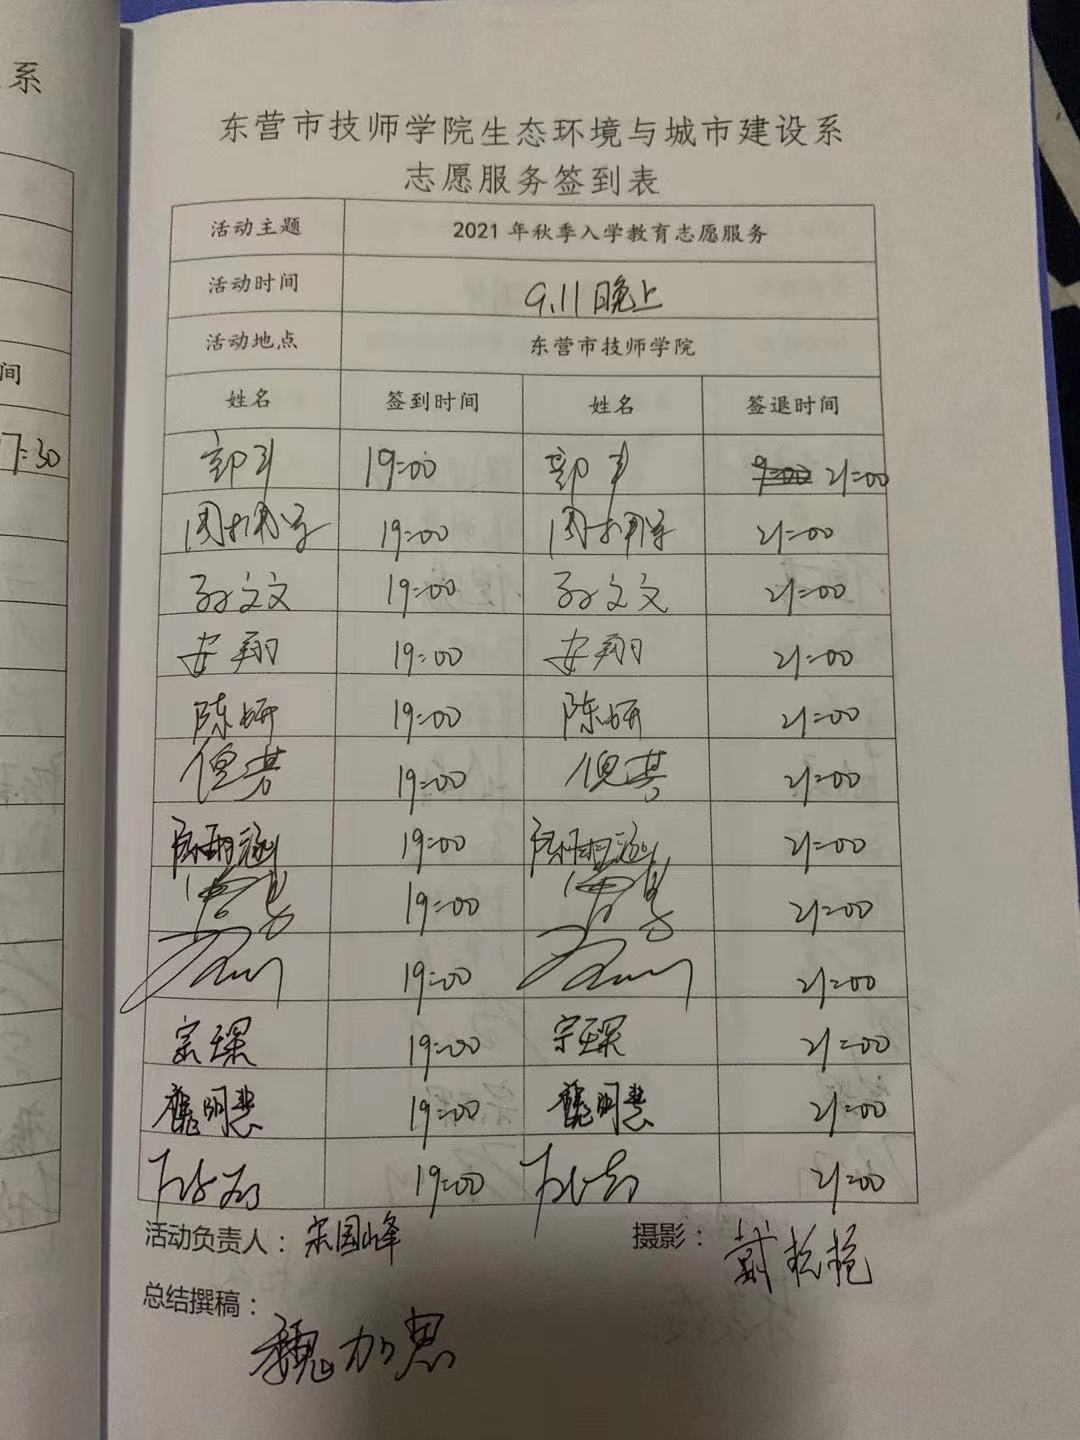 系
间
17:30
东营市技师学院生态环境与城市建设系
志愿服务签到表
活动主题 2021年秋季入学教育志愿服务
活动时间 9.11日晚上
活动地点 东营市技师学院
姓名 签到时间 姓名 签退时间
19:00 21:00
19:00 21:00
孙文文 19:00 孙文文 21:00
安翔 19:00 安翔 21:00
陈妍 19:00 陈妍 21:00
19:00 21:00
19:00 21:00
19:00 21:00
19:00 21:00
宗琛 19:00 宗琛 21:00
魏明慧 19:00 魏明慧 21:00
19:00 21:00
活动负责人：宋国峰 摄影：
总结撰稿：
魏加思